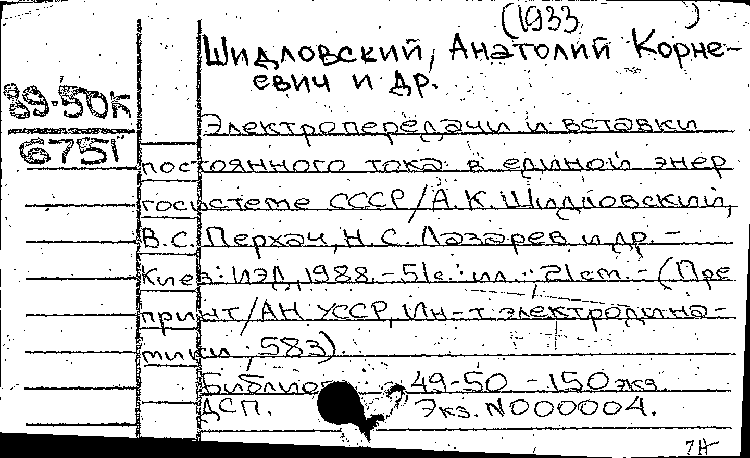 (1933 )
Шидловский, Анатолий Корне-
евич и др.
89-50К
6751
Электропередачи и вставки
постоянного тока в единой энер
госистеме СССР/А.К. Шидловский,
В.С. Перхач, Н.С. Лазарев и др. -
Киев: ИЭД, 1988. - 51с.: ил.; 21см. - (Пре
принт/АН УССР, Ин-т электродина-
мики; 583).
49-50 - 150 экз.
ДСП. Экз. N000004.